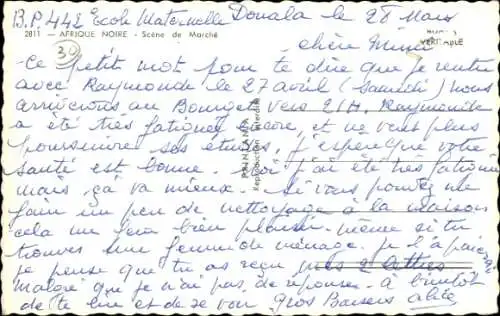 B.P. 442 École Maternelle Douala le 28 Mars
2811 - AFRIQUE NOIRE - Scène de Marché
30
VÉRITABLE
chère Mimi
ce petit mot pour te dire que je rentre
avec Raymonde le 27 avril (samedi) nous
arriverons au Bourget vers 21H. Raymonde
a été très fatiguée encore, et ne veut plus
poursuivre ses études, j'espère que votre
santé est bonne. moi j'ai été très fatiguée
mais ça va mieux. Si vous pouvez me
faire un peu de nettoyage à la maison
cela me fera bien plaisir. même si tu
trouves une femme de ménage je la paierai
je pense que tu as reçu mes 2 lettres
malgré que je n'ai pas de réponse. à bientôt
de te lire et de se voir gros Baisers Alice
Reproduction interdite